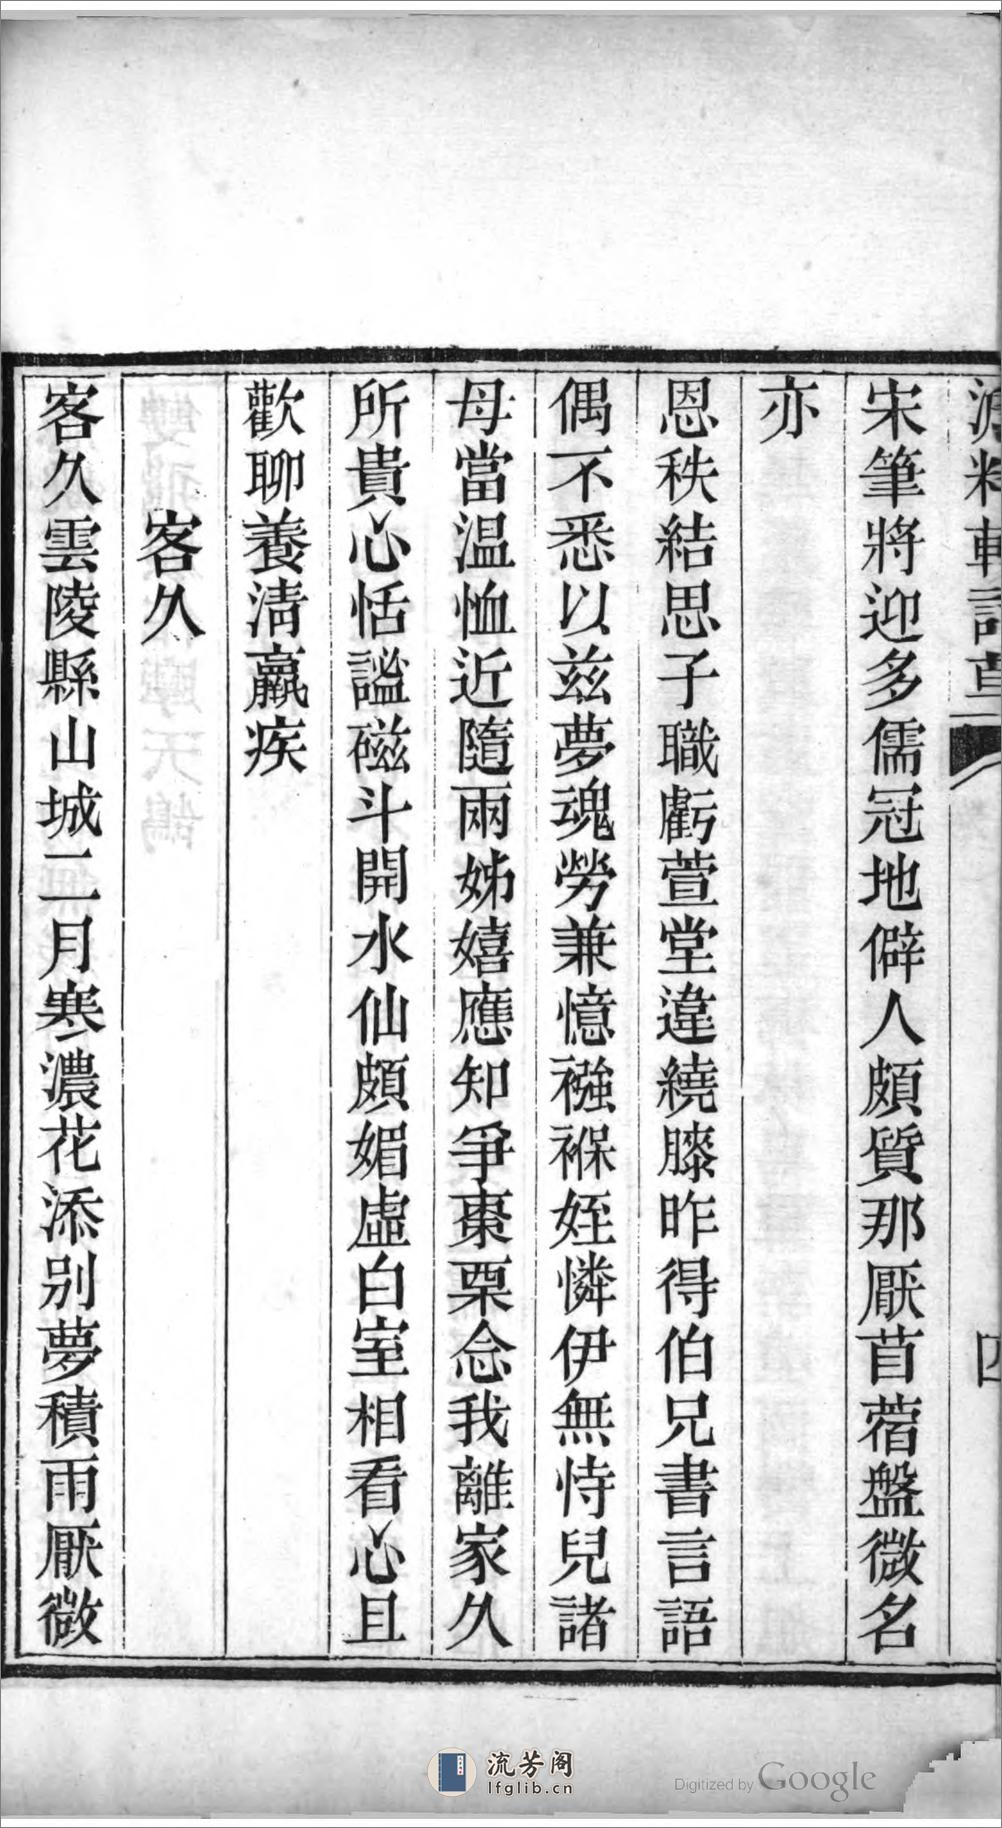 宋筆將迎多儒冠地僻人頗質那厭苜蓿盤微名
亦
恩秩結思子職虧萱堂違繞膝昨得伯兄書言語
偶不悉以兹夢魂勞兼憶襁褓姪憐伊無恃兒諸
母當温恤近隨兩姊嬉應知爭棗栗念我離家久
所貴心恬謐磁斗開水仙頗媚虛白室相看心且
歡聊養清羸疾
客久
客久雲陵縣山城二月寒濃花添别夢積雨厭微
四
流芳阁
lfglib.cn
Digitized by Google